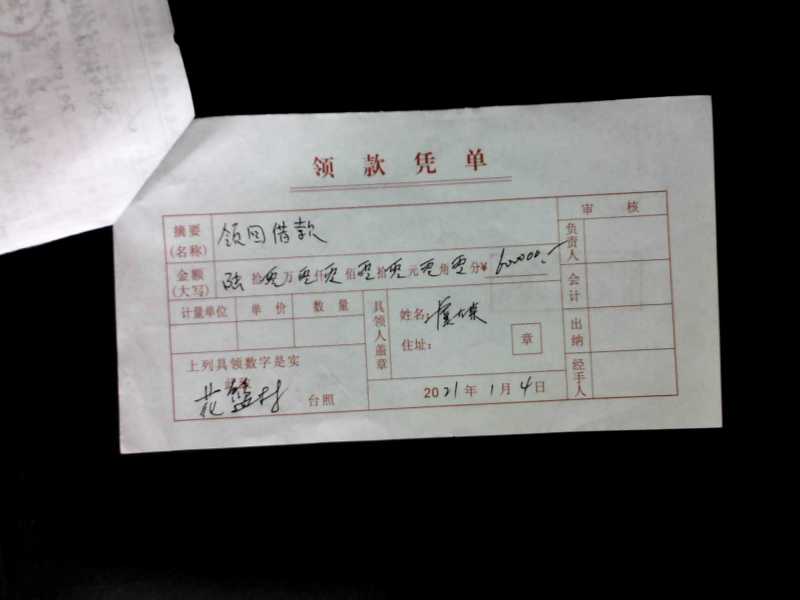 领款凭单
审核
摘要(名称) 领回借款
负责人
金额(大写) 陆拾零万零仟零佰零拾零元零角零分¥ 600000.-
会计
计量单位 单价 数量
具领人盖章
姓名:
住址: 章
出纳
上列具领数字是实
经手人
花 村 台照
2021年1月4日